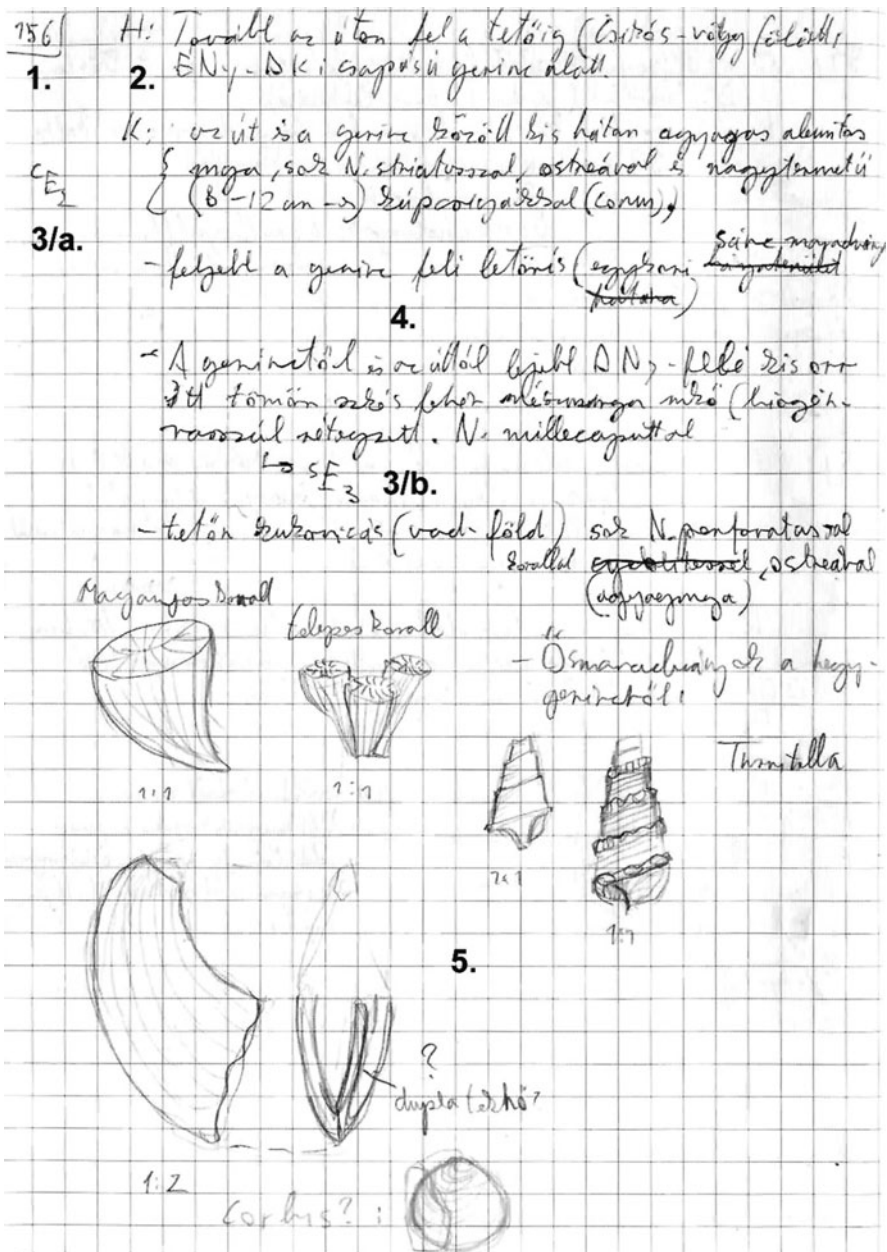 156 H: Tovább az úton fel a tetőig (Csikós-völgy fölött,
1. 2. ÉNy-DK-i csapású gerinc alatt.
K: az út és a gerinc között kis hátan agyagos aleuritos
cE2 márga, sok N. striatusszal, ostreával és nagytermetű
(8-12 cm-s) kúpcsigákkal (conus),
3/a.
- feljebb a gerinc feli letörés (egykori szine, maradvány
4.
- A gerinctől és az úttól lejjebb DNy-felé kis orr
itt tömön fehér mkő (biogén-
rétegzett. N. millecaputtal
→ sE3 3/b.
- tetőn kukoricás (vad-föld) sok N. perforatussal
korallal ostreával
(agyagmárga)
Magányos korall
telepes korall
- Ősmaradványok a hegy-
gerinctől:
Turritella
1:1 1:1
1:1
1:1
5.
?
dupla
1:2
Corbis? :